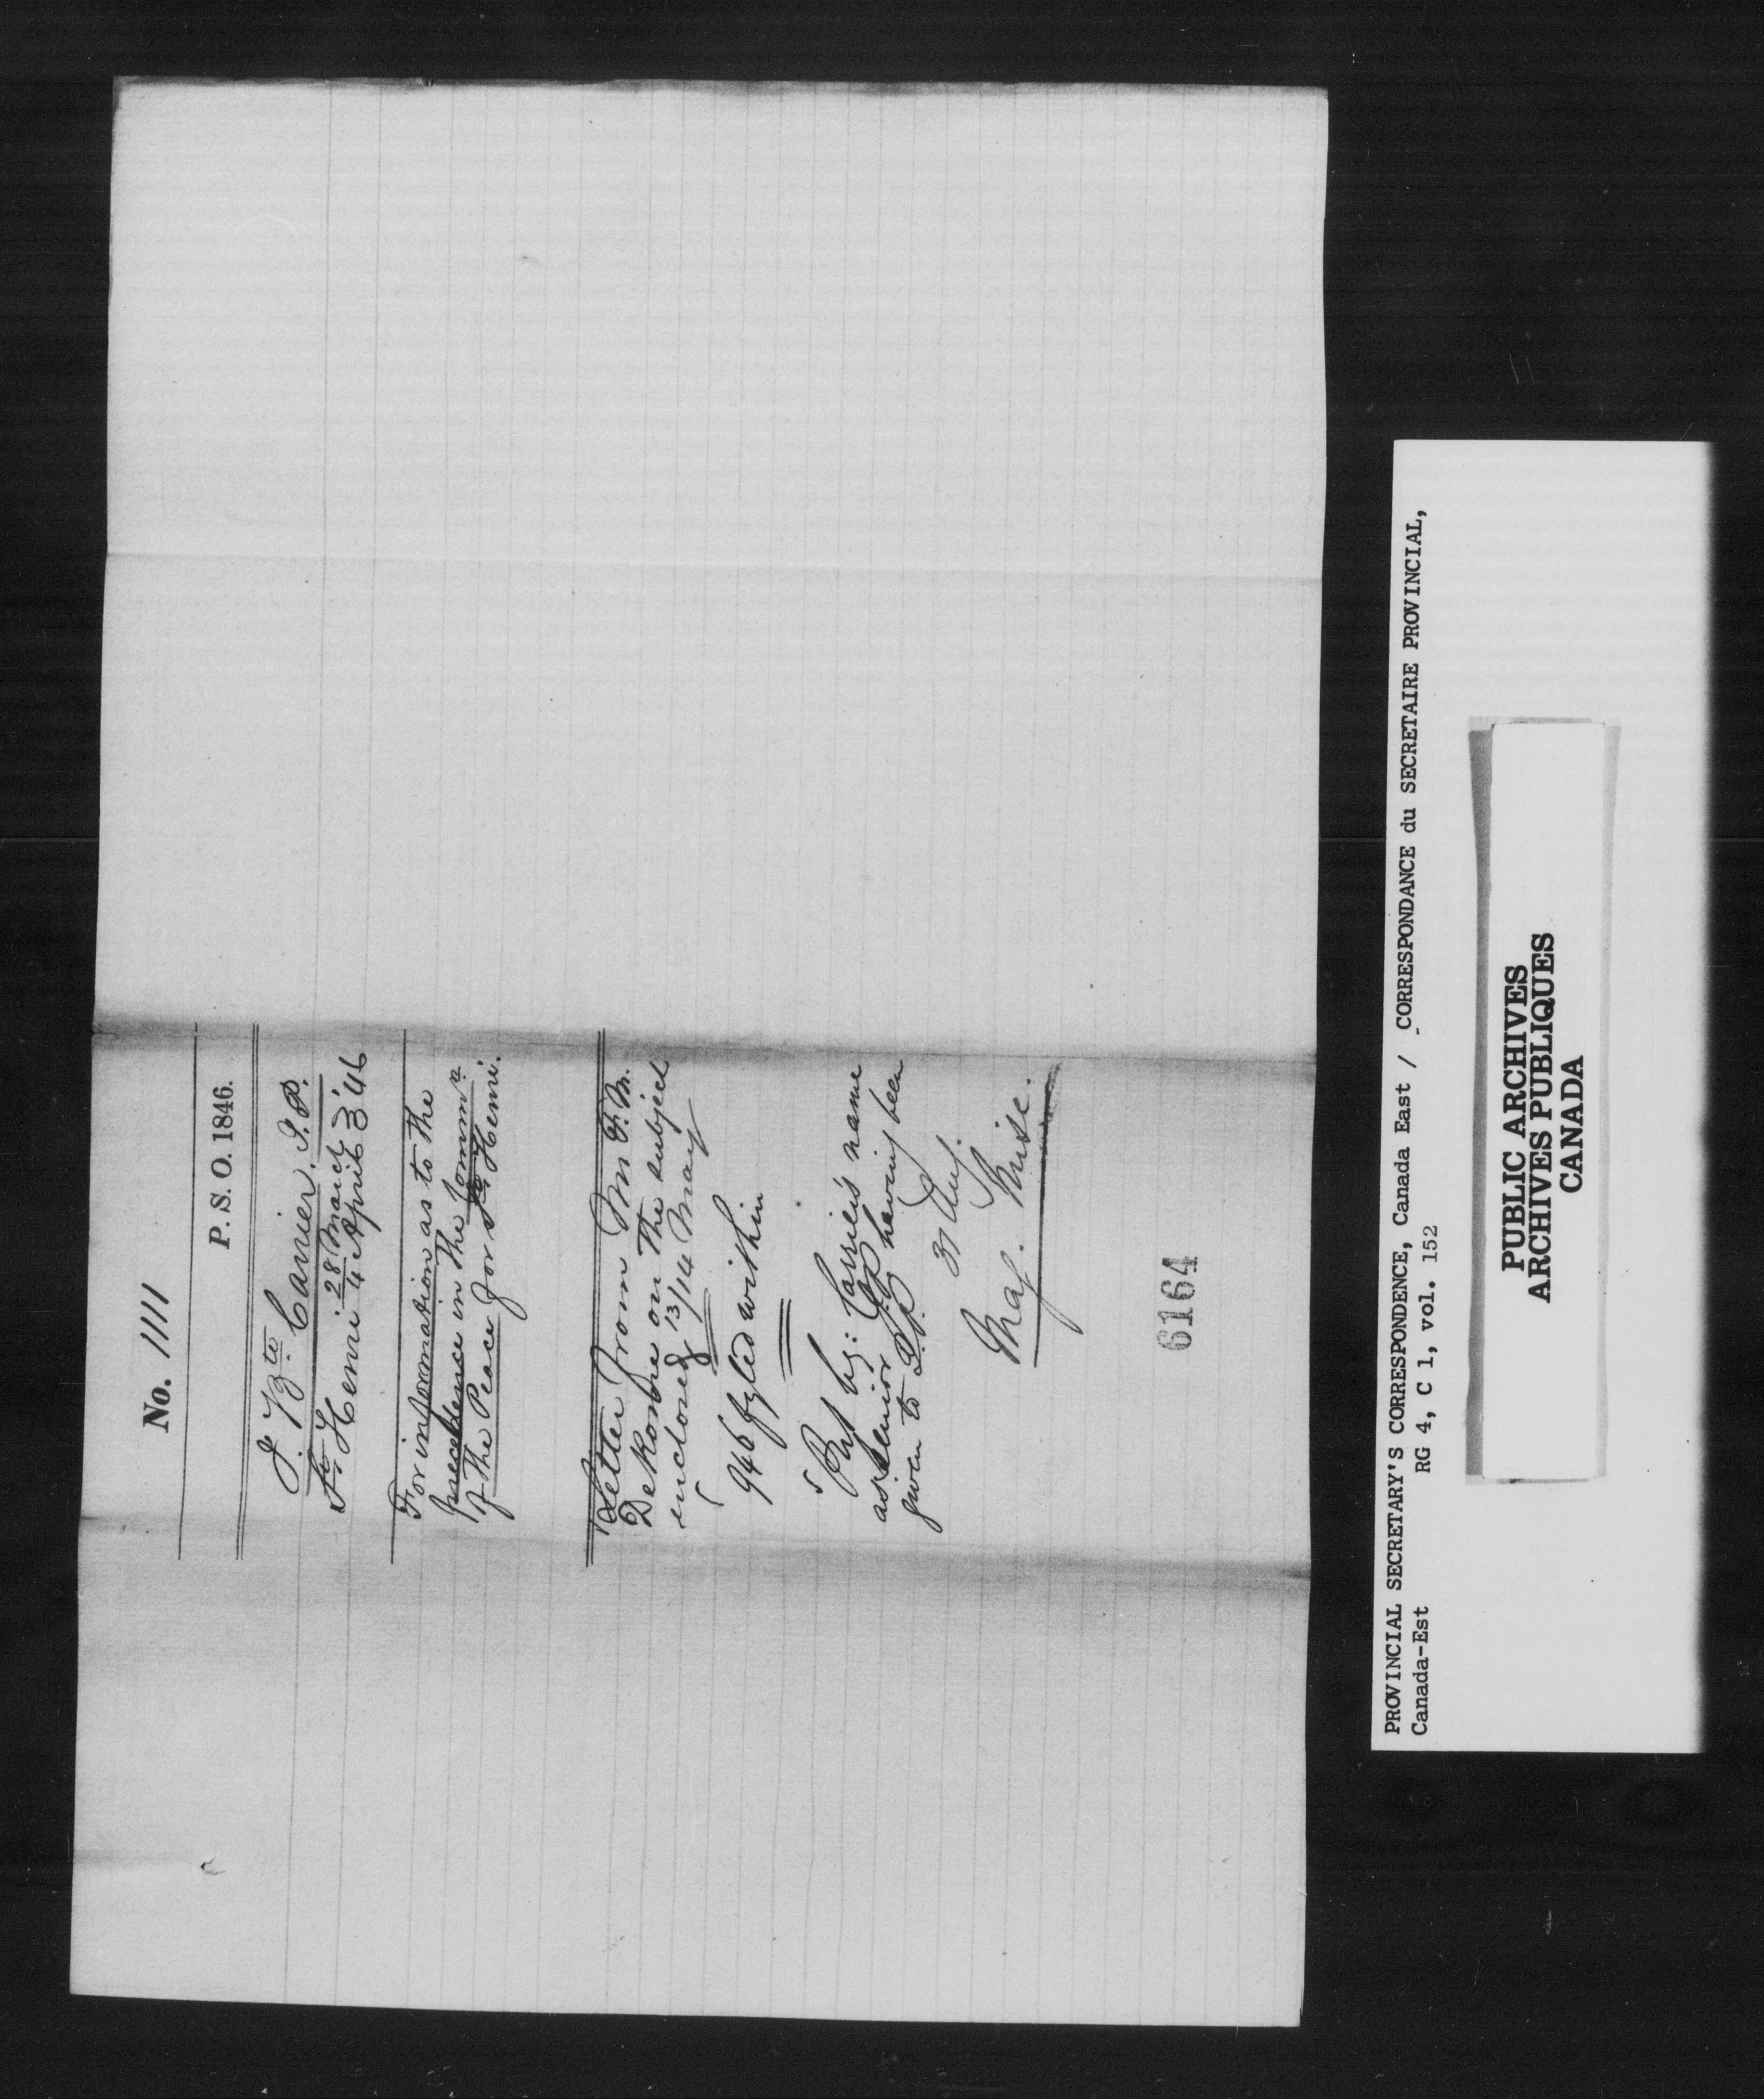 No. 1111
P. S. O. 1846.
J. Bte. Carrier. J.P.
St. Henri 28 March
4 April '46
For information as to the
precedence in the Commn
of the Peace for St. Henri.
Letter from Mr
on the subject
enclosed 13/14 May
946 fyled within
Carrier's name
as senior J.P. having been
given to
31 Aug.
Misc.
6164
PROVINCIAL SECRETARY'S CORRESPONDENCE, Canada East / CORRESPONDANCE du SECRETAIRE PROVINCIAL,
Canada-Est RG 4, C 1, vol. 152
PUBLIC ARCHIVES
ARCHIVES PUBLIQUES
CANADA